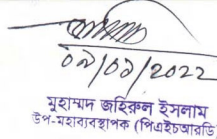 ০৯/০১/2022
মুহাম্মদ জহিরুল ইসলাম
উপ-মহাব্যবস্থাপক (পিএইচআরডি